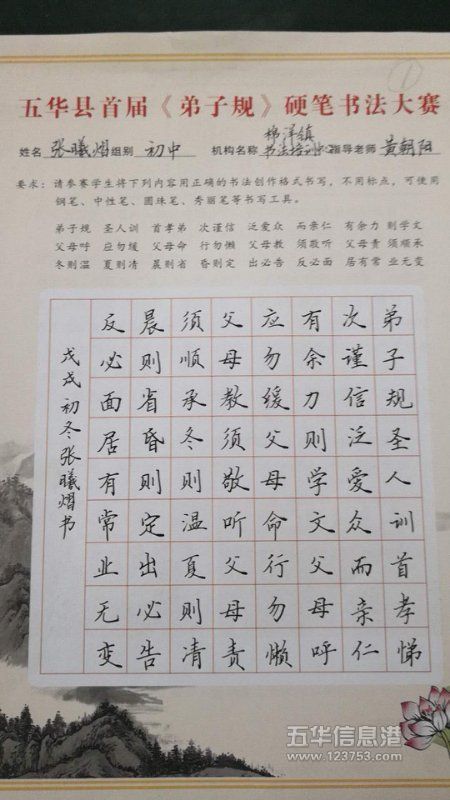 ①
五华县首届《弟子规》硬笔书法大赛
姓名 张曦熠 组别 初中 机构名称 棉洋镇书法培训中心 指导老师 黄朝阳
要求：请参赛学生将下列内容用正确的书法创作格式书写，不用标点，可使用
钢笔、中性笔、圆珠笔、秀丽笔等书写工具。
弟子规 圣人训 首孝弟 次谨信 泛爱众 而亲仁 有余力 则学文
父母呼 应勿缓 父母命 行勿懒 父母教 须敬听 父母责 须顺承
冬则温 夏则凊 晨则省 昏则定 出必告 反必面 居有常 业无变
弟子规圣人训首孝悌
次谨信泛爱众而亲仁
有余力则学文父母呼
应勿缓父母命行勿懒
父母教须敬听父母责
须顺承冬则温夏则清
晨则省昏则定出必告
反必面居有常业无变
戊戌初冬张曦熠书
五华信息港
www.123753.com